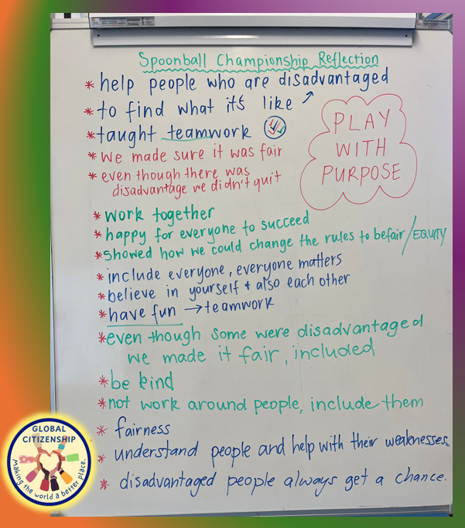 Spoonball Championship Reflection
* help people who are disadvantaged
* to find what it's like ↗
* taught teamwork
* we made sure it was fair
* even though there was
disadvantage we didn't quit
PLAY
WITH
PURPOSE
* work together
* happy for everyone to succeed
* showed how we could change the rules to be fair/EQUITY
* include everyone, everyone matters
* believe in yourself & also each other
* have fun → teamwork
* even though some were disadvantaged
we made it fair, included
* be kind
* not work around people, include them
* fairness
* understand people and help with their weaknesses
* disadvantaged people always get a chance.
GLOBAL
CITIZENSHIP
Making the world a better place.